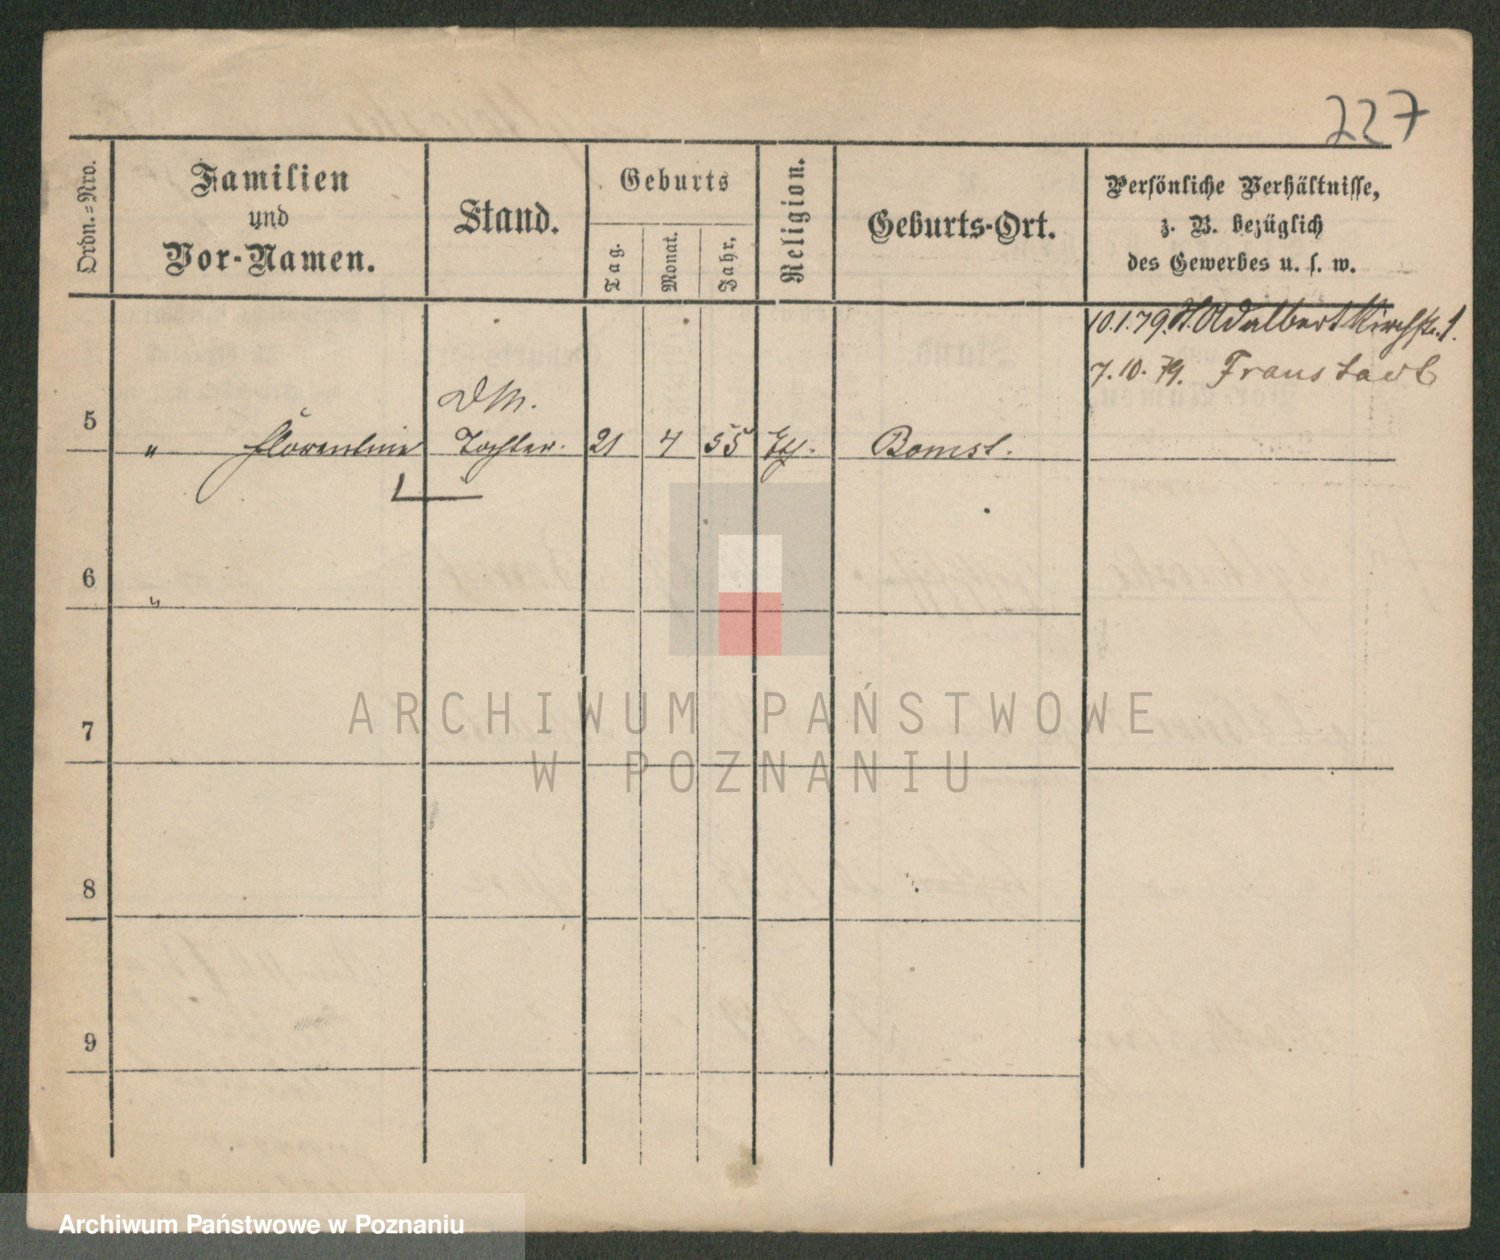 227
Ordn.=Nro.
Familien
und
Vor-Namen.
Stand.
Geburts
Tag.
Monat.
Jahr.
Religion.
Geburts-Ort.
Persönliche Verhältnisse,
z. B. bezüglich
des Gewerbes u. s. w.
10.1.79. St. Adalbert Kirchstr. 1.
7.10.79. Fraustadt
DM.
5 " Florentine Tochter. 21 4 55 Ev. Bomst.
6 "
7
8
9
ARCHIWUM PAŃSTWOWE
W POZNANIU
Archiwum Państwowe w Poznaniu